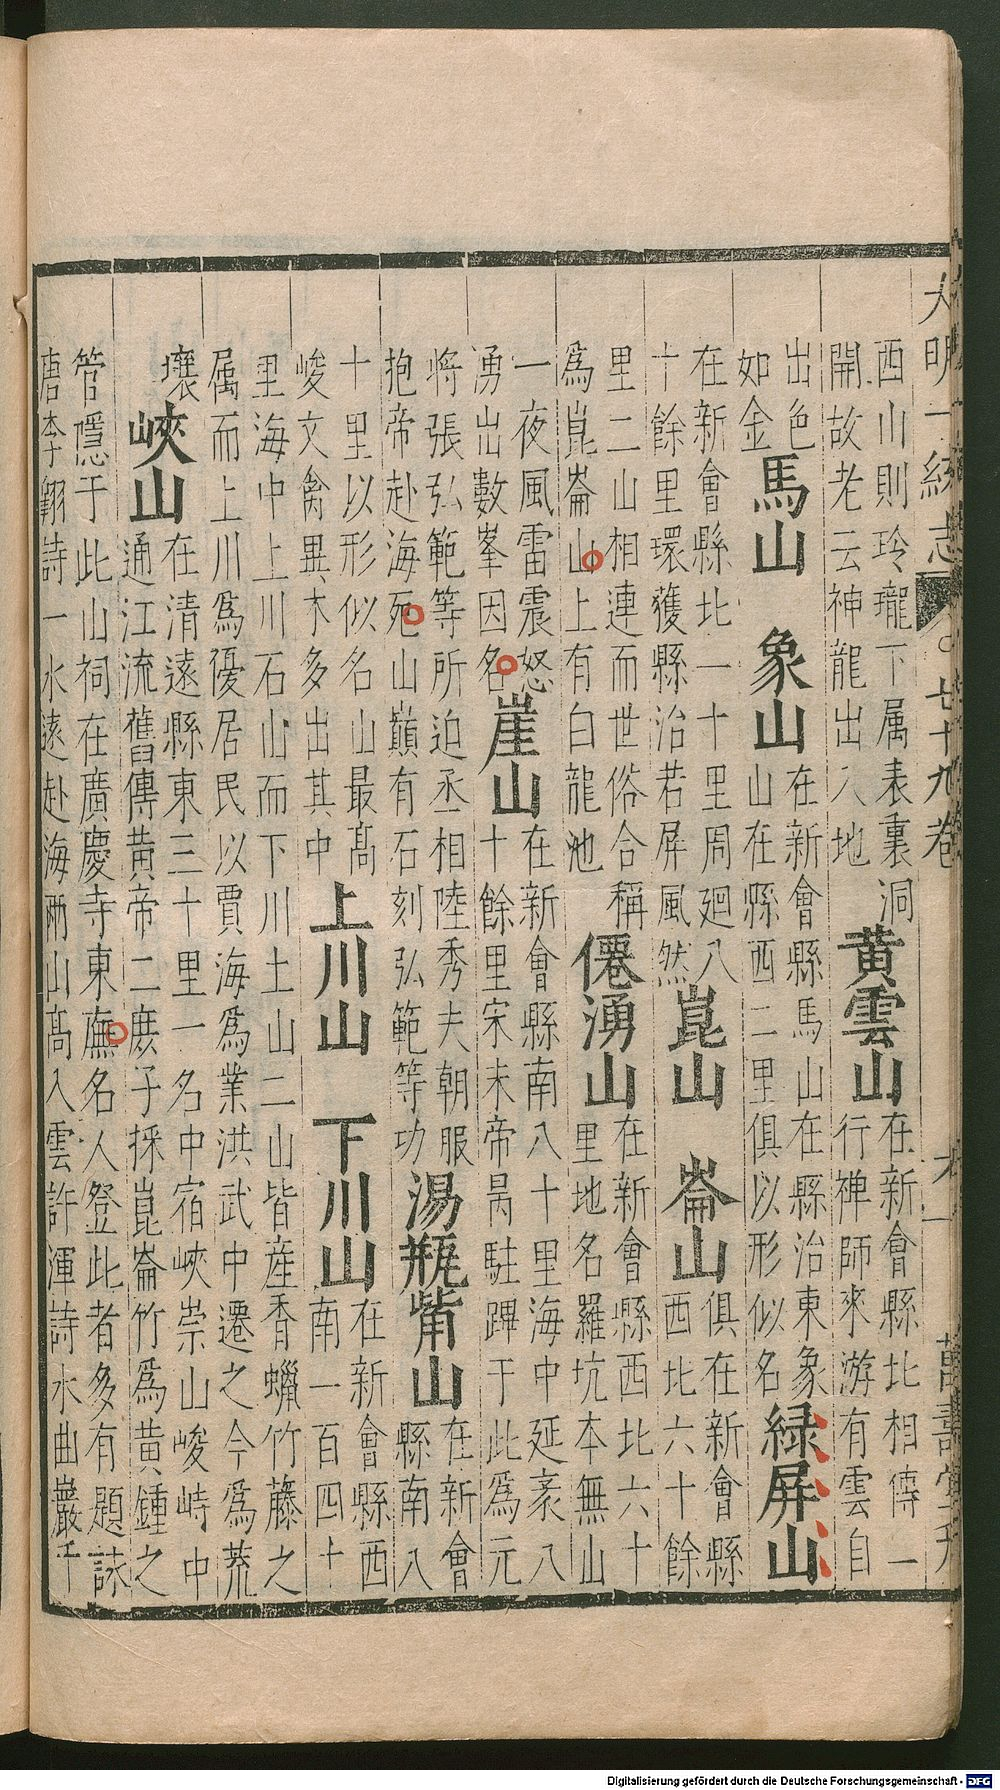 大明一統志 七十九卷 六 萬壽堂刊
西山則玲瓏下属表裏洞
開故老云神龍出入地
黄雲山
在新會縣北相傳一
行禅師來游有雲自
出色
如金
馬山 象山
在新會縣馬山在縣治東象
山在縣西二里俱以形似名
緑屏山
在新會縣北一十里周廻八
十餘里環獲縣治若屏風然
崑山 崙山
俱在新會縣
西北六十餘
里二山相連而世俗合稱
爲崑崙山上有白龍池
僊湧山
在新會縣西北六十
里地名羅坑本無山
一夜風雷震怒
湧出數峯因名
崖山
在新會縣南八十里海中延袤八
十餘里宋末帝昺駐蹕于此爲元
将張弘範等所迫丞相陸秀夫朝服
抱帝赴海死山巔有石刻弘範等功
湯瓶觜山
在新會
縣南八
十里以形似名山最髙
峻文禽異木多出其中
上川山 下川山
在新會縣西
南一百四十
里海中上川石山而下川土山二山皆産香蠟竹藤之
属而上川爲優居民以賈海爲業洪武中遷之今爲荒
壤
峽山
在清遠縣東三十里一名中宿峽崇山峻峙中
通江流舊傳黄帝二庻子採崑崙竹爲黄鍾之
管隱于此山祠在廣慶寺東廡名人登此者多有題詠
唐李翺詩一水遠赴海兩山髙入雲許渾詩水曲巖千
Digitalisierung gefördert durch die Deutsche Forschungsgemeinschaft - DFG